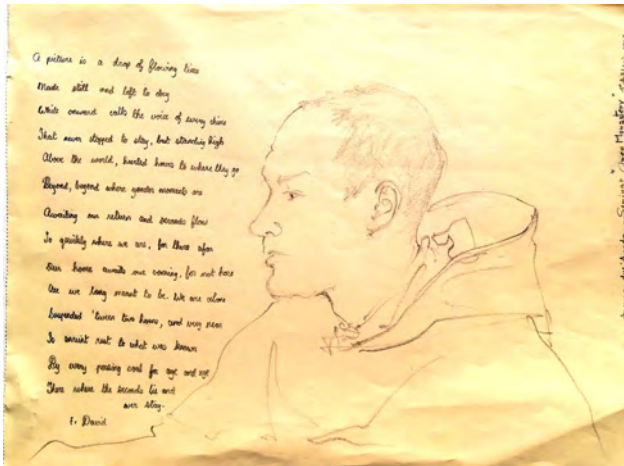 A picture is a drop of flowing time
Made still and left to dry
While onward calls the voice of every chime
That never stopped to stay, but standing high
Above the world, hunted hours to where they go
Beyond, beyond where yonder moments are
Awaiting our return and seconds flow
So quickly where we are, for those afar
Our home awaits our coming, for not here
Are we long meant to be. We are alone
Suspended 'tween two hours, and very near
To ancient rest to what was known
By every passing soul for age and age
There where the seconds lie and
ever stay.
Fr David